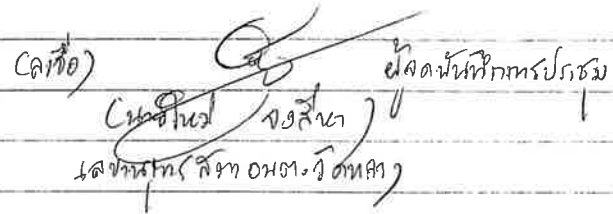 (ลงชื่อ) ผู้จดบันทึกการประชุม
(นายใหม่ จงสีหา)
เลขานุการสภา อบต.